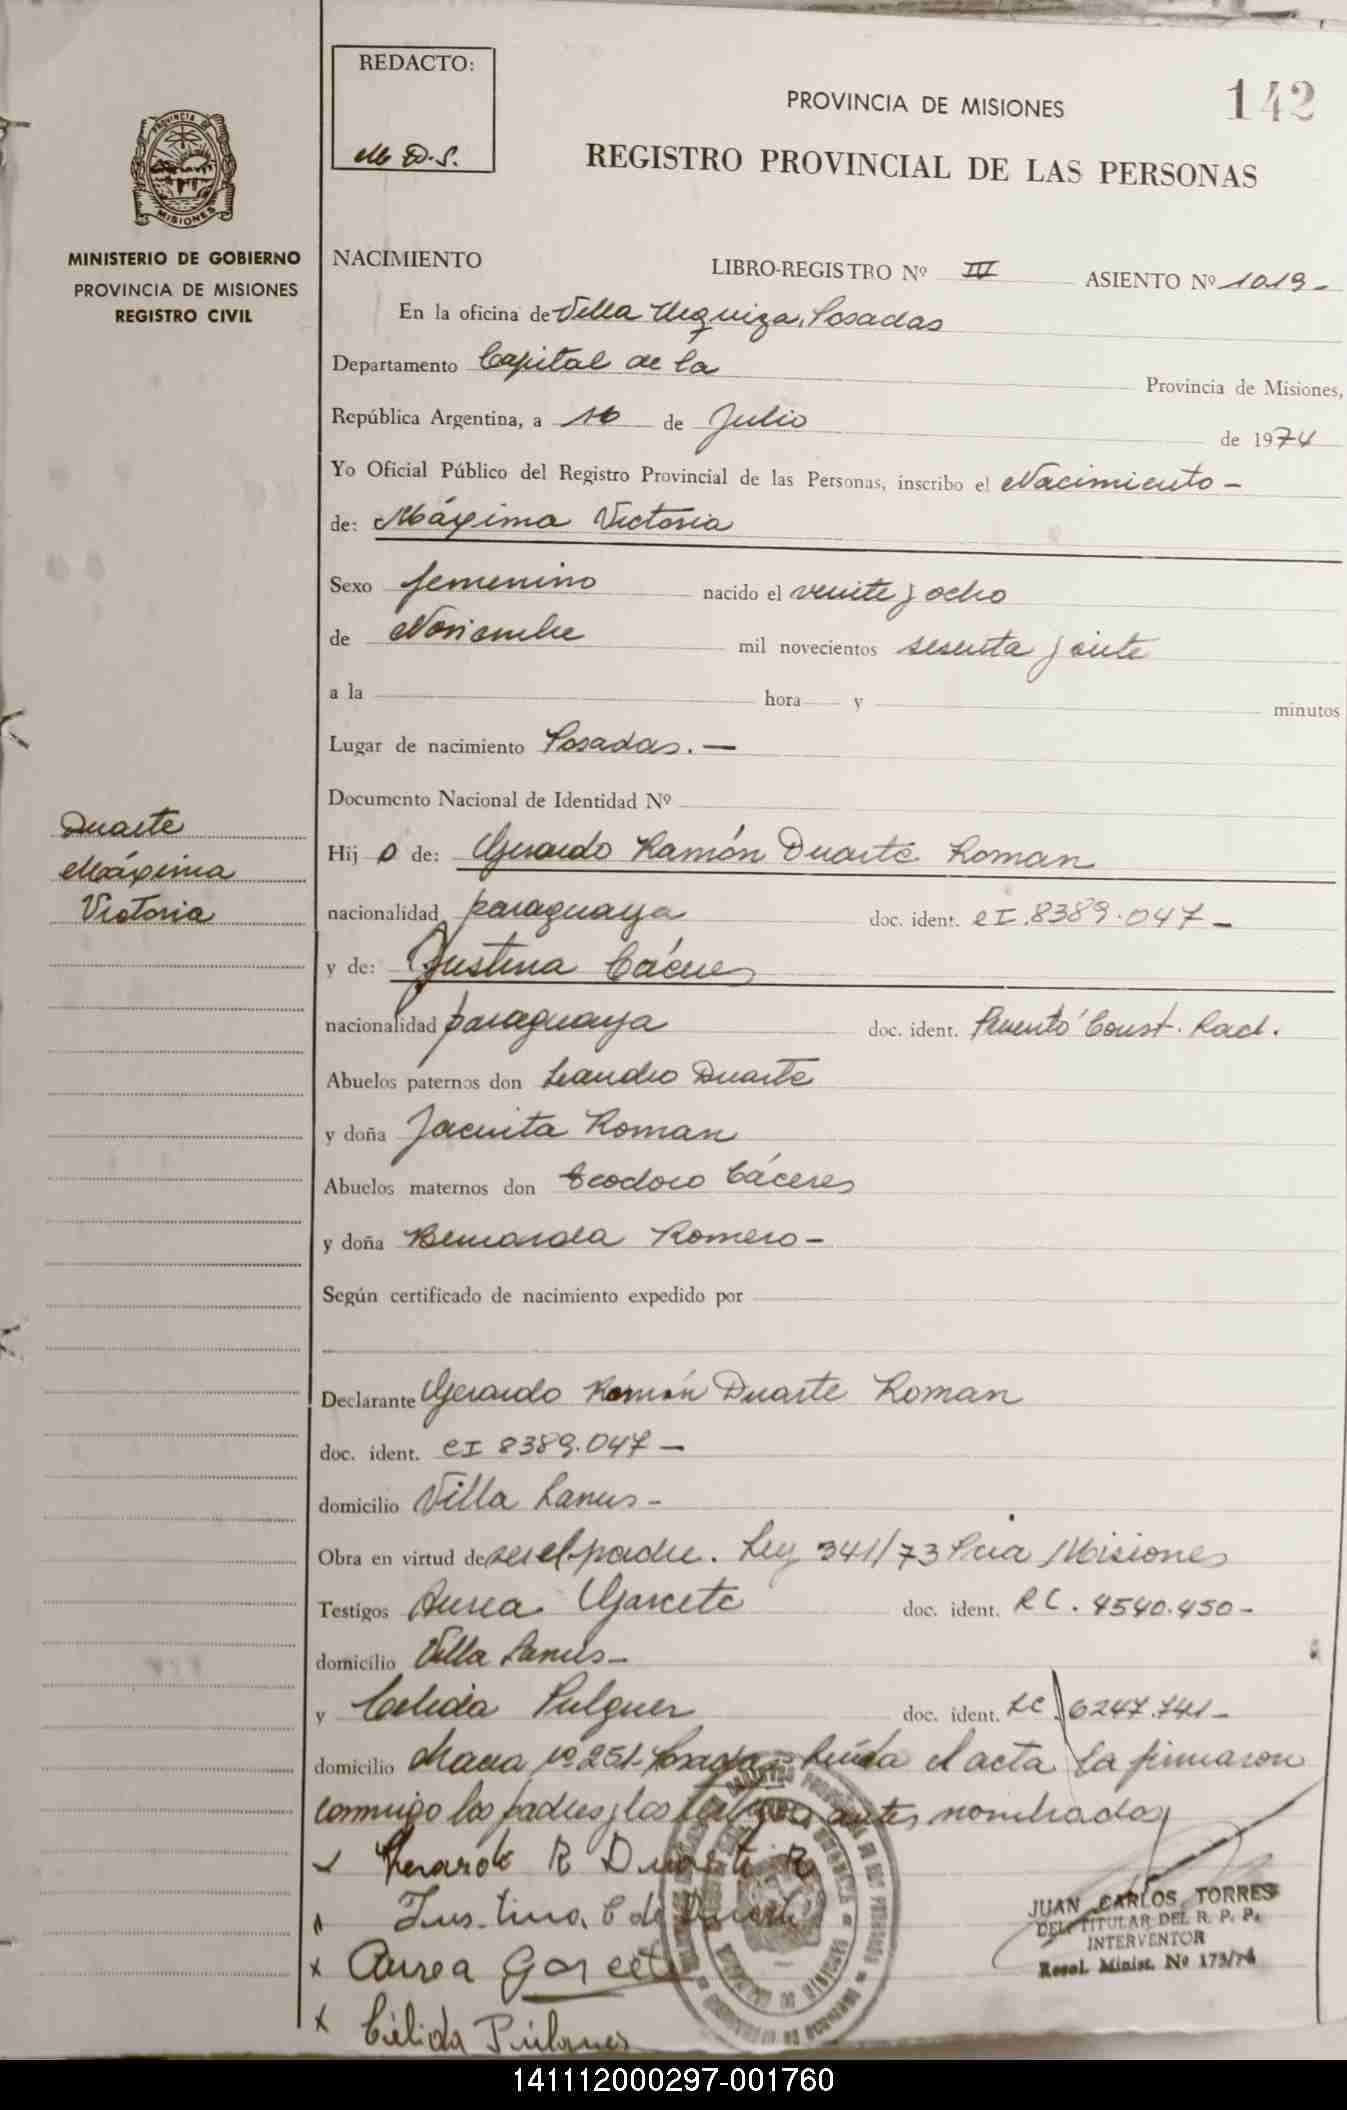 REDACTO:
M D.S.
PROVINCIA DE MISIONES
142
REGISTRO PROVINCIAL DE LAS PERSONAS
PROVINCIA DE
MISIONES
MINISTERIO DE GOBIERNO
PROVINCIA DE MISIONES
REGISTRO CIVIL
NACIMIENTO LIBRO-REGISTRO Nº IV ASIENTO Nº 1019-
En la oficina de Villa Urquiza, Posadas
Departamento Capital de la Provincia de Misiones,
República Argentina, a 16 de Julio de 1974
Yo Oficial Público del Registro Provincial de las Personas, inscribo el Nacimiento-
de: Máxima Victoria
Sexo femenino nacido el veinte y ocho
de Noviembre mil novecientos sesenta y siete
a la hora y minutos
Lugar de nacimiento Posadas.-
Documento Nacional de Identidad Nº
Duarte
Máxima
Victoria
Hij o de: Gerardo Ramón Duarte Roman
nacionalidad paraguaya doc. ident. CI.8389.047-
y de: Justina Cáceres
nacionalidad paraguaya doc. ident. Presentó Const. Rad.
Abuelos paternos don Leandro Duarte
y doña Jacinta Roman
Abuelos maternos don Teodoro Cáceres
y doña Bernarda Romero-
Según certificado de nacimiento expedido por
Declarante Gerardo Ramón Duarte Roman
doc. ident. CI 8389.047-
domicilio Villa Lanus-
Obra en virtud de ser el padre. Ley 341/73 Pcia Misiones
Testigos Aurea Garcete doc. ident. RC. 4540.450-
domicilio Villa Lanus-
y Celida doc. ident. LC. 6247.741-
domicilio Chacra nº 251- Posadas- Leída el acta la firmaron
conmigo los padres y los testigos antes nombrados
Gerardo R Duarte R
Justina C de Duarte
x Aurea Garcete
x Célida
JUAN CARLOS TORRES
DEL. TITULAR DEL R. P. P.
INTERVENTOR
Resol. Minist. No 173/74
141112000297-001760